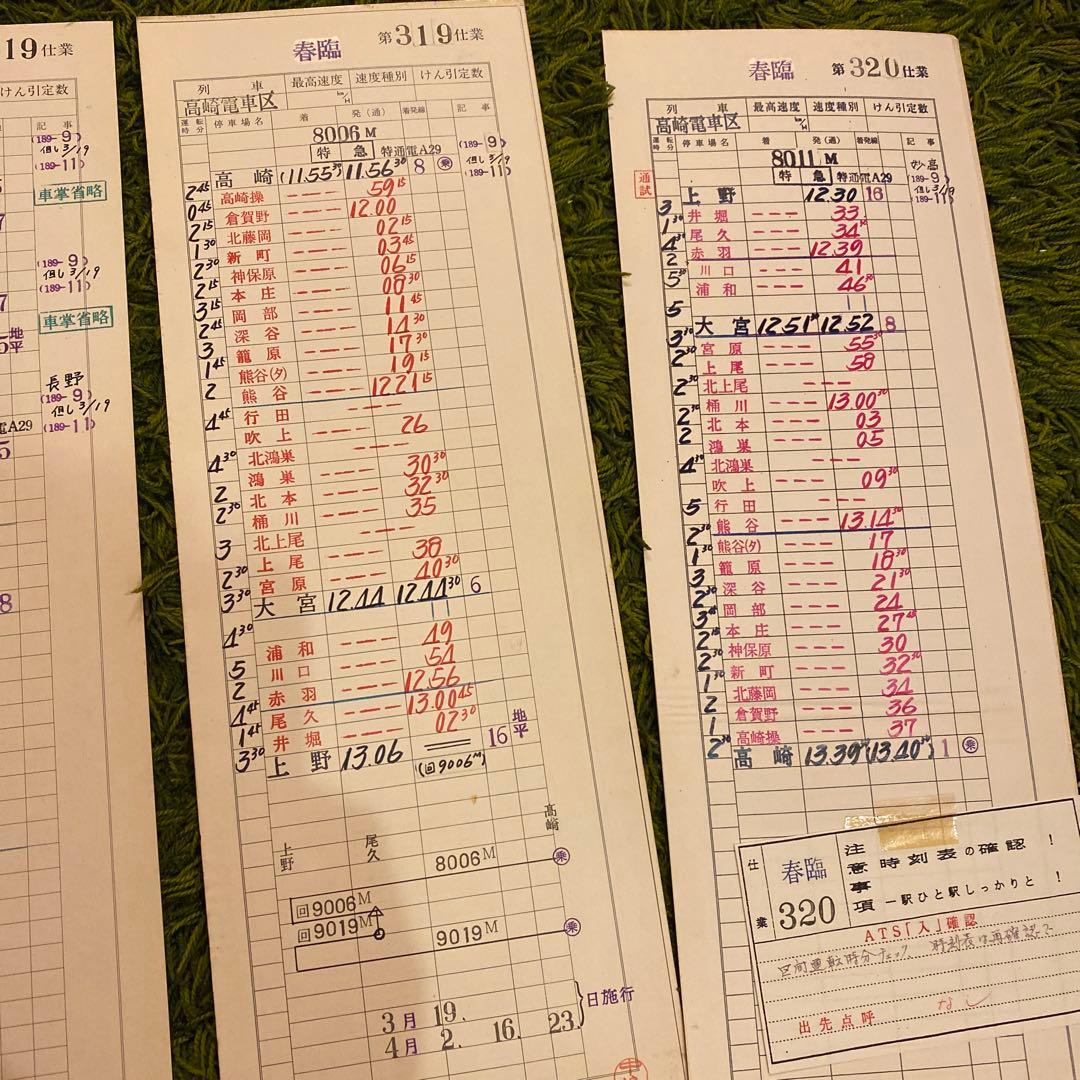 19仕業
けん引定数
記事
(189-9)
但し3/19
(189-11)
車掌省略
(189-9)
但し3/19
(189-11)
車掌省略
地平
長野
(189-9)
但し3/19
電A29 (189-11)
春臨 第319仕業
列車 最高速度 速度種別 けん引定数
高崎電車区 km/H
運転時分 停車場名 着 発(通) 着発線 記事
8006M (189-9)
特急 特通電A29 但し3/19
高崎 (11.55 11.56 30 8 乗 (189-11)
2 45 高崎操 --- 59 15
0 45 倉賀野 --- 12.00
2 15 北藤岡 --- 02 15
1 30 新町 --- 03 45
2 30 神保原 --- 06 15
2 15 本庄 --- 08 30
3 15 岡部 --- 11 45
2 45 深谷 --- 14 30
3 籠原 --- 17 30
1 45 熊谷(タ) --- 19 15
2 熊谷 --- 12.21 15
行田 ---
4 45 吹上 --- 26
北鴻巣 ---
4 30 鴻巣 --- 30 30
2 北本 --- 32 30
2 30 桶川 --- 35
北上尾 ---
3 上尾 --- 38
2 30 宮原 --- 40 30
3 30 大宮 12.44 12.44 30 6
4 30 浦和 --- 49
5 川口 --- 54
2 赤羽 --- 12.56
4 45 尾久 --- 13.00 45
1 45 井堀 --- 02 30
3 30 上野 13.06 (回9006M) 16 地平
上野 尾久 高崎
8006M 乗
回9006M
回9019M 9019M 乗
3月 19.
4月 2. 16. 23 日施行
春臨 第320仕業
列車 最高速度 速度種別 けん引定数
高崎電車区 km/H
運転時分 停車場名 着 発(通) 着発線 記事
8011M 妙高
通試 特急 特通電A29 (189-9)
但し3/19
上野 12.30 16 (189-11)
3 井堀 --- 33
1 30 尾久 --- 34 30
4 30 赤羽 --- 12.39
2 川口 --- 41
5 30 浦和 --- 46 30
5 大宮 12.51 30 12.52 8
3 30 宮原 --- 55 30
2 30 上尾 --- 58
北上尾 ---
2 30 桶川 --- 13.00 30
2 30 北本 --- 03
2 鴻巣 --- 05
北鴻巣 ---
4 30 吹上 --- 09 30
行田 ---
5 熊谷 --- 13.14 30
2 30 熊谷(タ) --- 17
1 30 籠原 --- 18 30
3 深谷 --- 21 30
2 30 岡部 --- 24
3 45 本庄 --- 27 45
2 15 神保原 --- 30
2 30 新町 --- 32 30
1 30 北藤岡 --- 34
2 倉賀野 --- 36
1 高崎操 --- 37
2 30 高崎 13.39 30 (13.40 30) 1 乗
仕業 春臨 320
注意事項
時刻表の確認!
一駅ひと駅しっかりと!
ATS「入」確認
区間運転時分チェック、時刻表は再確認して
出先点呼 なし